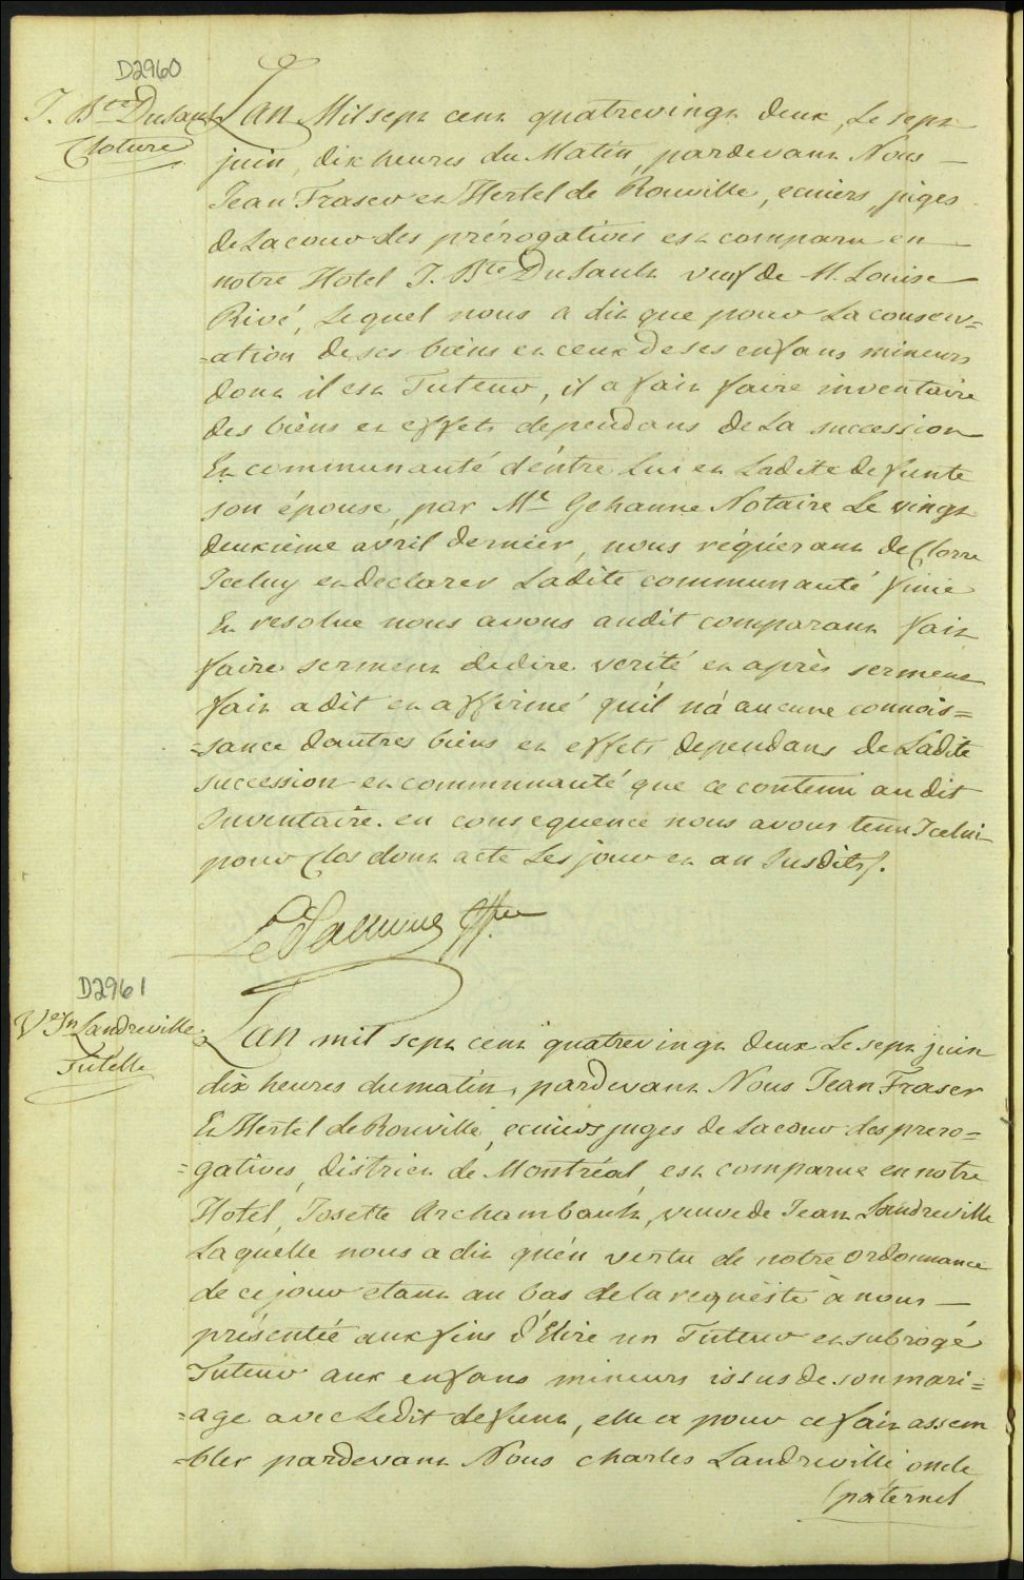 D2960
J. Bte Dusault
Cloture
Lan Mil sept cent quatrevingt deux, Le sept
juin, dix heures du Matin, pardevant Nous —
Jean Fraser et Hertel de Rouville, ecuiers, juges
de La cour des prérogatives est comparu en —
notre Hotel J. Bte DuSault veuf de M. Louise
Rivé, Lequel nous a dit que pour La conserv=
=ation de ses biens et ceux de ses enfans mineurs
dont il est Tuteur, il a fait faire inventaire
des biens et effets dependans de La succession
Et communauté d'entre Lui et Ladite defunte
son épouse, par Me Gehanne Notaire Le vingt
deuxième avril dernier, nous réquerant de Clorre
Iceluy et declarer Ladite communauté finie
Et resolue nous avons audit comparant fait
faire serment de dire verité et après serment
fait a dit et affirmé qu'il n'a aucune connois=
=sance dautres biens et effets dependans de Ladite
succession et communauté que ce contenu au dit
Inventaire. en consequence nous avons tenu Icelui
pour Clos dont acte Les jour et an Susdits.
D2961
Ve Jn Landreville
Tutelle
Lan mil sept cent quatrevingt deux Le sept juin
dix heures du matin, pardevant Nous Jean Fraser
Et Hertel de Rouville, ecuiers juges de La cour des prero=
=gatives, district de Montréal, est comparue en notre
Hotel, Josette Archambault, veuve de Jean Landreville
Laquelle nous a dit qu'en vertu de notre Ordonnance
de ce jour etant au bas de la requeste à nous —
présentée aux fins d'Elire un Tuteur et subrogé
Tuteur aux enfans mineurs issus de son mari=
=age avec Ledit defunt, elle a pour ce fait assem
=bler pardevant Nous Charles Landreville oncle
paternel